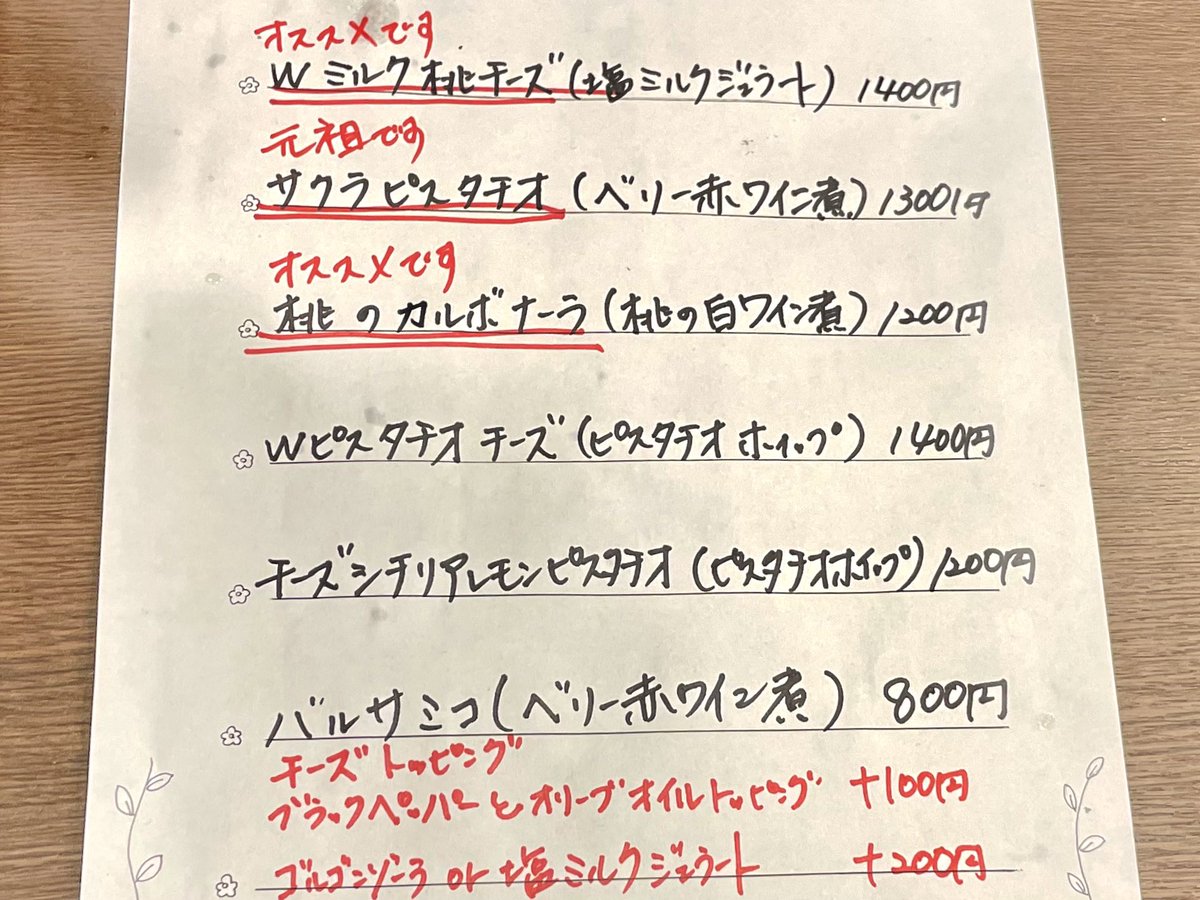 オススメです
Wミルク桃チーズ(塩ミルクジェラート) 1400円
元祖です
サクラピスタチオ(ベリー赤ワイン煮) 1300円
オススメです
桃のカルボナーラ(桃の白ワイン煮) 1200円
Wピスタチオチーズ(ピスタチオホイップ) 1400円
チーズシチリアレモンピスタチオ(ピスタチオホイップ) 1200円
バルサミコ(ベリー赤ワイン煮) 800円
チーズトッピング
ブラックペッパーとオリーブオイルトッピング +100円
ゴルゴンゾーラ or 塩ミルクジェラート +200円